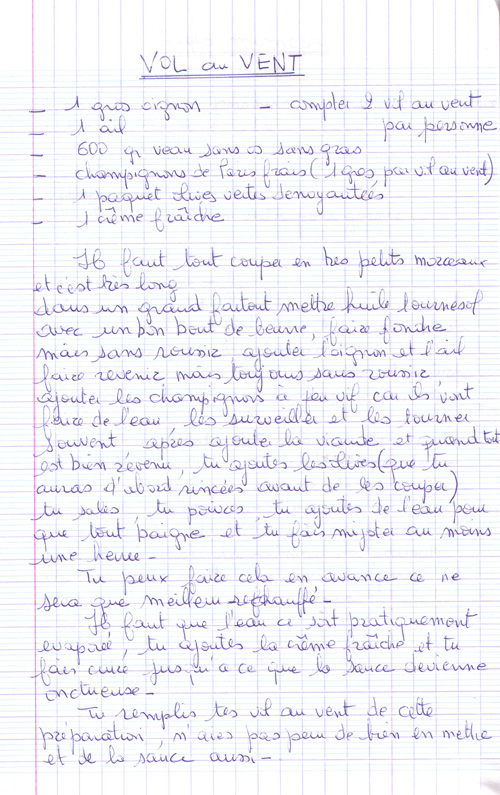 VOL au VENT
- 1 gros oignon - compter 2 vil au vent
- 1 ail par personne
- 600 gr veau sans os sans gras
- champignons de Paris frais (1 gros par vil au vent)
- 1 paquet olives vertes dénoyautées
- 1 crème fraîche
Il faut tout couper en très petits morceaux
et c'est très long
dans un grand faitout mettre huile tournesol
avec un bon bout de beurre, faire fondre
mais sans roussir, ajouter l'oignon et l'ail
faire revenir mais toujours sans roussir
ajouter les champignons à feu vif car ils vont
faire de l'eau, les surveiller et les tourner
souvent après ajouter la viande et quand tout
est bien revenu, tu ajoutes les olives (que tu
auras d'abord rincées avant de les couper)
tu sales, tu poivres, tu ajoutes de l'eau pour
que tout baigne et tu fais mijoter au moins
une heure -
Tu peux faire cela en avance ce ne
sera que meilleur réchauffé -
Il faut que l'eau ce soit pratiquement
evaporé, tu ajoutes la crème fraîche et tu
fais cuire jusqu'a ce que la sauce devienne
onctueuse -
Tu remplis tes vil au vent de cette
préparation, n'aies pas peur de bien en mettre
et de la sauce aussi -